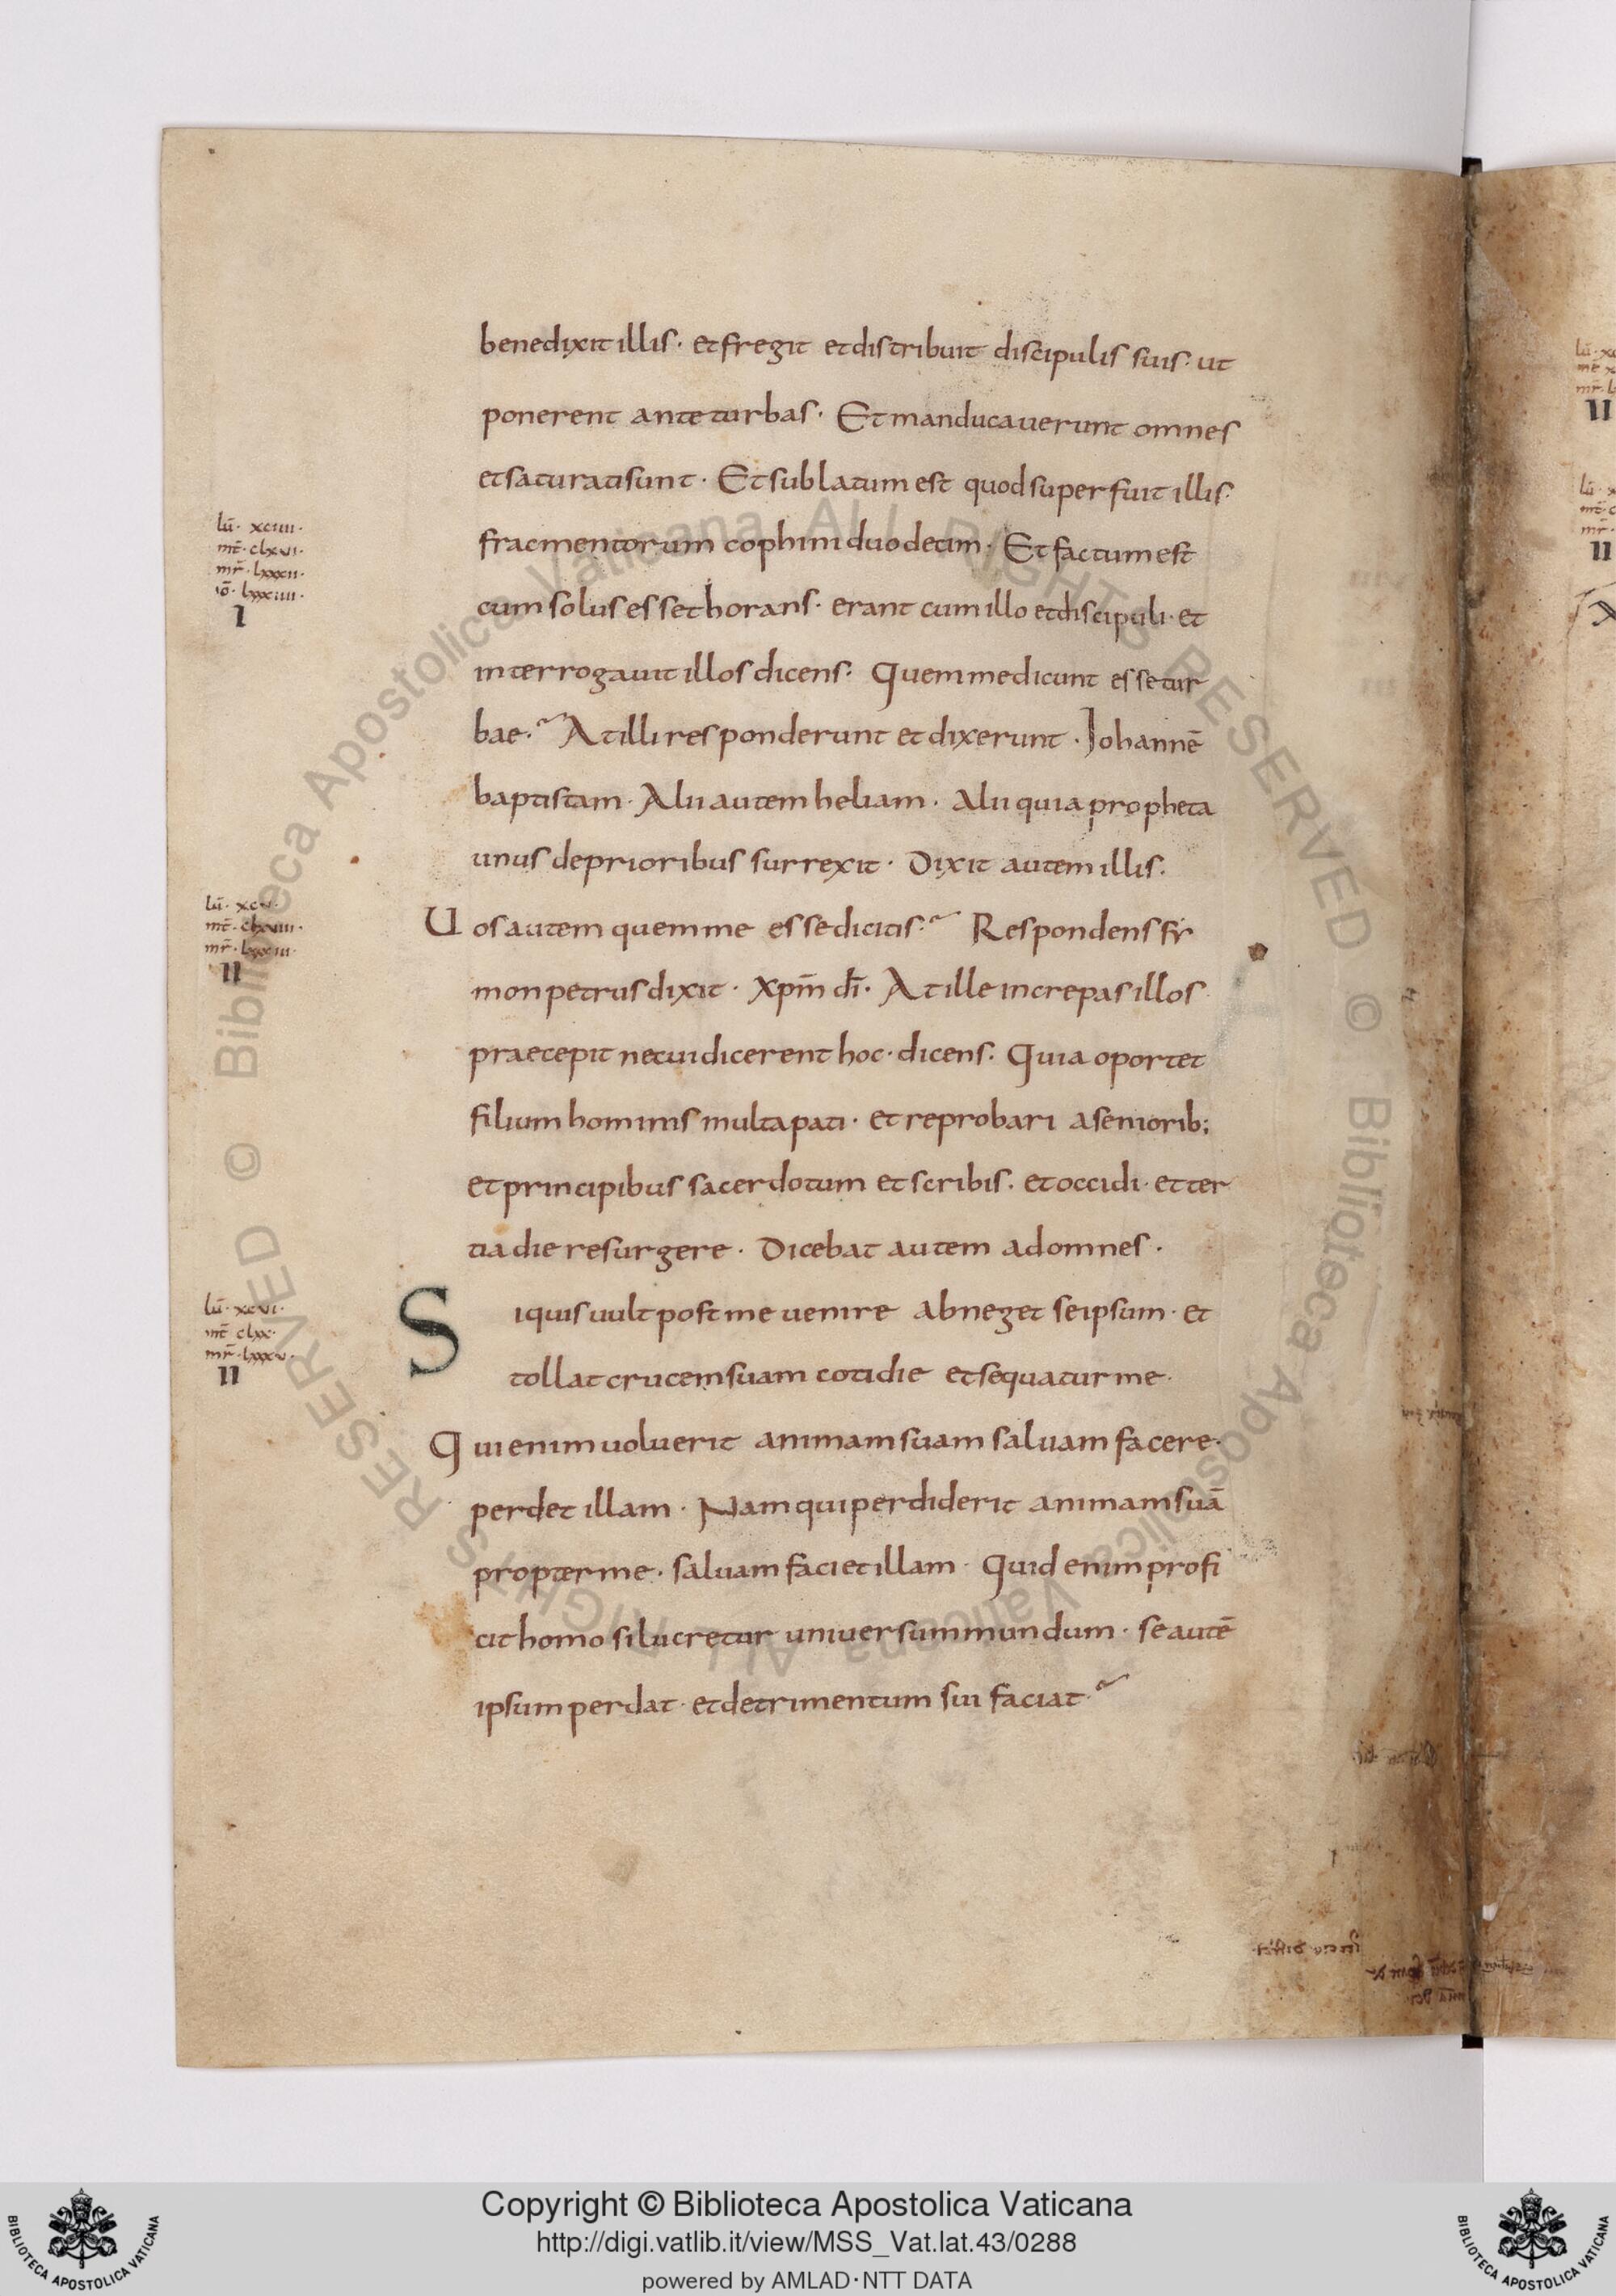 benedixit illis · et fregit et distribuit discipulis suis · ut
ponerent ante turbas · Et manducauerunt omnes
et saturati sunt · Et sublatum est quod superfuit illis ·
lū · xciiii ·
mt̄ · clxvi ·
mr̄ · lxxxii ·
iō · lxxxiiii ·
I
fracmentorum cophini duodecim · Et factum est
cum solus esset horans · erant cum illo et discipuli · et
interrogauit illos dicens · Quem me dicunt esse tur
bae · At illi responderunt et dixerunt · Johannē
baptistam · Alii autem heliam · Alii quia propheta
unus de prioribus surrexit · Dixit autem illis ·
lū · xcv ·
mt̄ · clxviii ·
mr̄ · lxxxiii ·
II
Uos autem quem me esse dicitis · Respondens sy
mon petrus dixit · Xpm̄ dī · At ille increpas illos
praecepit ne cui dicerent hoc · dicens · Quia oportet
filium hominis multa pati · et reprobari a seniorib;
et principibus sacerdotum et scribis · et occidi · et ter
tia die resurgere · Dicebat autem ad omnes ·
lū · xcvi ·
mt̄ clxx ·
mr̄ · lxxxv ·
II
Si quis uult post me uenire abneget se ipsum · et
tollat crucem suam cotidie et sequatur me ·
Qui enim uoluerit animam suam saluam facere ·
perdet illam · Nam qui perdiderit animam suā
propter me · saluam faciet illam · Quid enim profi
cit homo si lucretur uniuersum mundum · se autē
ipsum perdat · et detrimentum sui faciat ·
Copyright © Biblioteca Apostolica Vaticana
http://digi.vatlib.it/view/MSS_Vat.lat.43/0288
powered by AMLAD·NTT DATA
BIBLIOTECA APOSTOLICA VATICANA
BIBLIOTECA APOSTOLICA VATICANA
© Biblioteca Apostolica Vaticana ALL RIGHTS RESERVED © Biblioteca Apostolica Vaticana ALL RIGHTS RESERVED